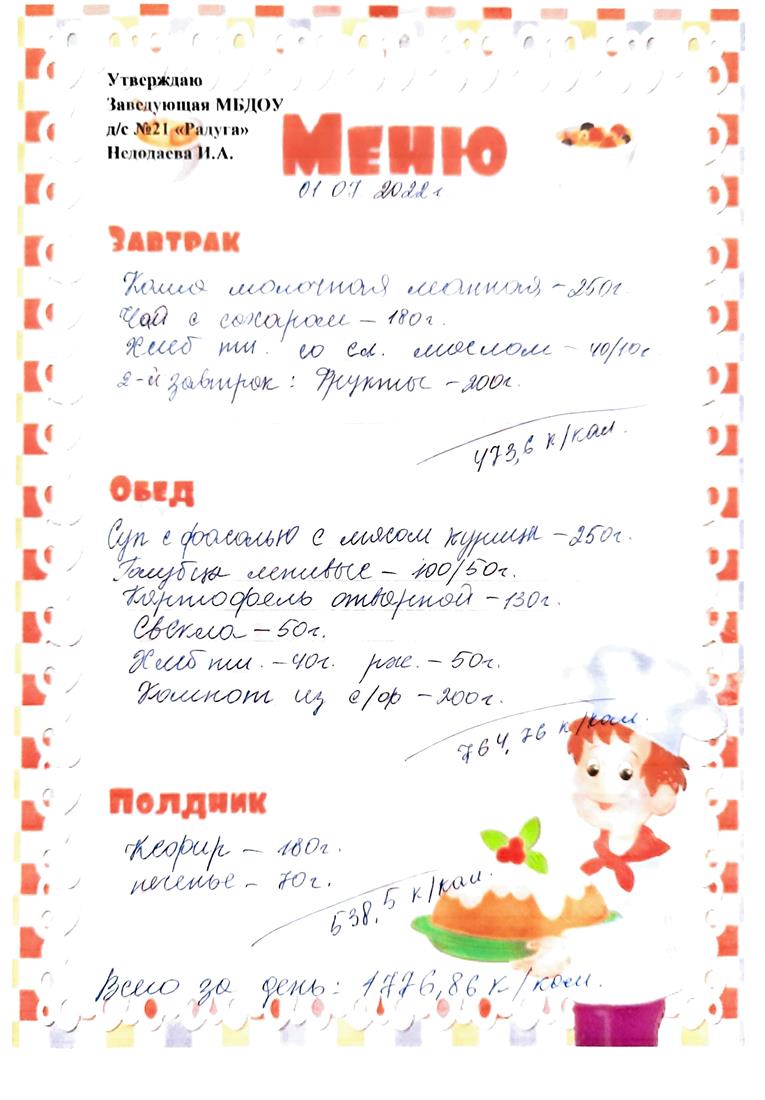 Утверждаю
Заведующая МБДОУ
д/с №21 «Радуга»
Недодаева И.А.
Меню
01 07 2022г
Завтрак
Каша молочная манная – 250г.
Чай с сахаром – 180г.
Хлеб пш. со сл. маслом – 40/10г
2-й завтрак: Фрукты – 200г.
473,6 к/кал.
Обед
Суп с фасолью с мясом курицы – 250г.
Голубцы ленивые – 100/50г.
Картофель отварной – 130г.
Свекла – 50г.
Хлеб пш. – 40г. рж. – 50г.
Компот из с/ф – 200г.
764,76 к/кал.
Полдник
Кефир – 180г.
печенье – 70г.
538,5 к/кал.
Всего за день: 1776,86 к/кал.